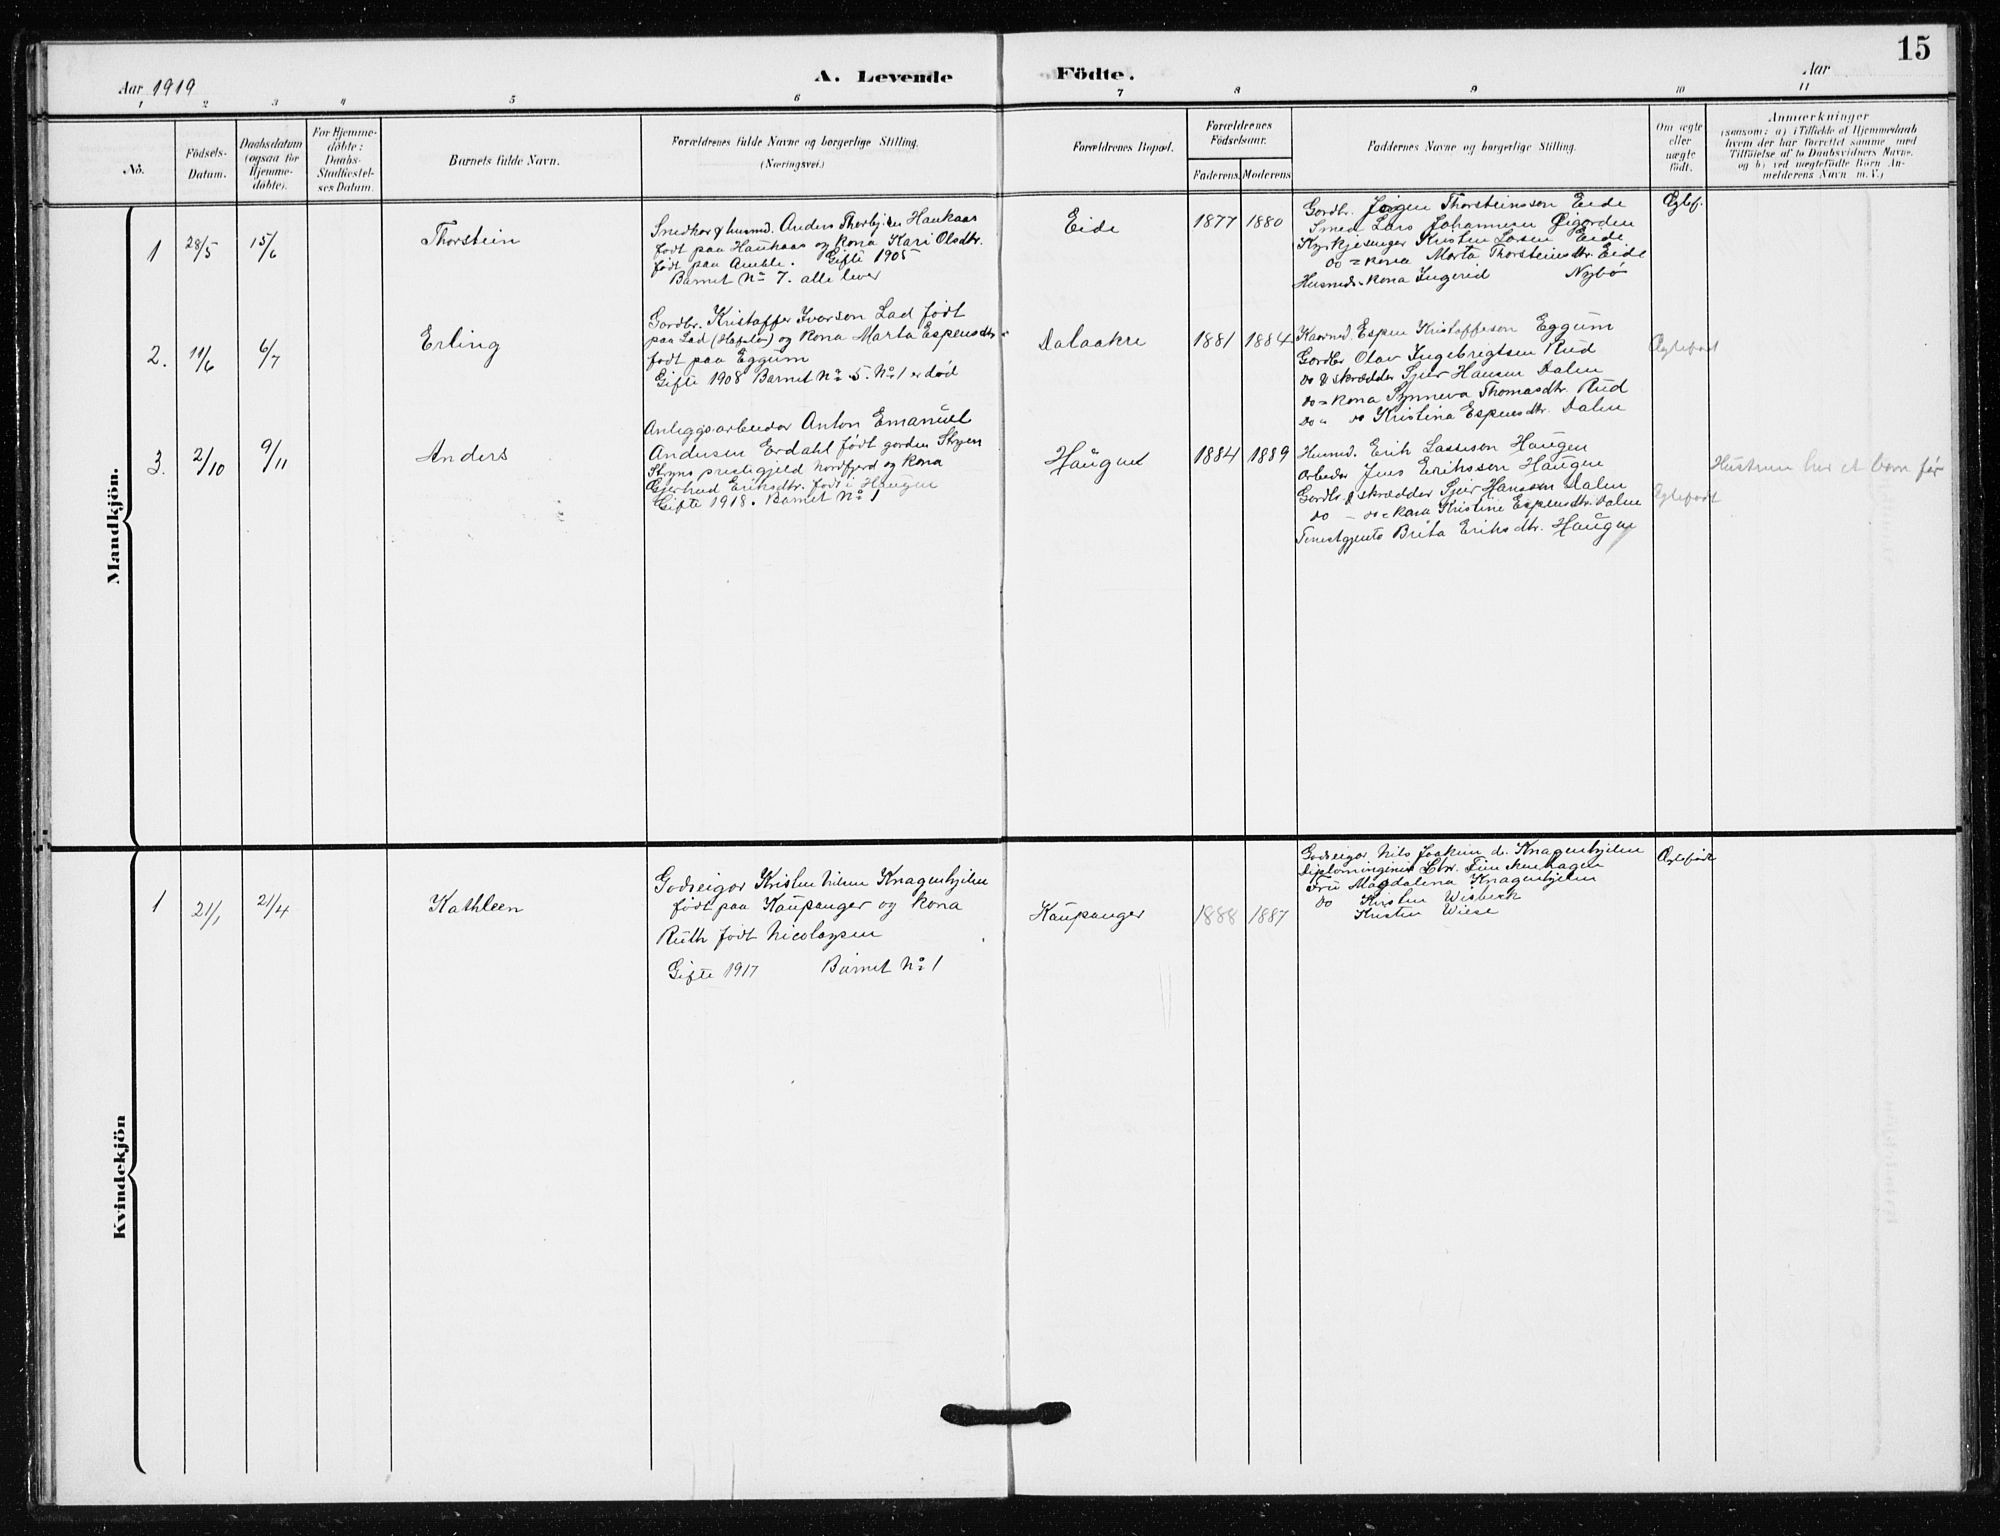 15
Aar 1919
A. Levende Födte.
Aar
1 2 3 4 5 6 7 8 9 10 11
No.
Födsels-Datum.
Daabsdatum (ogsaa for Hjemmedöbte).
For Hjemmedöbte: Daabs-Stadfæstelses Datum.
Barnets fulde Navn.
Forældrenes fulde Navne og borgerlige Stilling. (Næringsvei.)
Forældrenes Bopæl.
Forældrenes Födselsaar.
Faderens. Moderens.
Faddernes Navne og borgerlige Stilling.
Om ægte eller uægte födt.
Anmærkninger
(saasom: a) i Tilfælde af Hjemmedaab
hvem der har forrettet samme, med
Tilföielse af to Daabsvidners Navne.
og b) ved uægtefödte Börn An-
melderens Navn m. V.)
Mandkjön.
1
28/5
15/6
Thorstein
Snedker & husmd. Anders Thorbjsen Haukaas
født paa Haukaas og kona Kari Olsdtr.
født paa Amble. Gifte 1905
Barnet No 7. alle lever
Eide
1877 1880
Gardbr. Jørgen Thorsteinsson Eide
Smed Lars Johannesen Øigarden
Kyrkjesanger Kristen Larsen Eide
do = kona Marta Thorsteinsdtr. Eide
Husmds-kona Ingerid Nybø
Ægtef.
2.
11/6
6/7
Erling
Gardbr. Kristaffer Ivarson Lad født
paa Lad (Hafslo) og kona Marta Espensdtr
født paa Eggum
Gifte 1908 Barnet No 5. No 1 er død
Dalaakre
1881 1884
Kaarmd. Espen Kristaffeson Eggum
Gardbr Olav Ingebrigtsen Rud
do & skrædder Sjur Hansen Dalen
do = kona Synneva Thomasdtr. Rud
do " do Kristina Espensdtr. Dalen
Ægtefødt
3.
2/10
9/11
Anders
Anleggsarbeidar Anton Emanuel
Andersen Erdahl født garden Stryen
Stryns prestegjeld nordfjord og kona
Gjertrud Eriksdtr. født i Haugen
Gifte 1918. Barnet No 1
Haugen
1884 1889
Husmd. Erik Lasseson Haugen
Arbeider Jens Eriksson Haugen
Gardbr & skrædder Sjur Hansson Dalen
do - do = kona Kristine Espensdtr. Dalen
Tenestgjenta Brita Eriksdtr. Haugen
Ægtefødt
Hustruen har et barn før
Kvindekjön
1
21/1
21/4
Kathleen
Godseigar Kristen Nilsen Knagenhjelm
født paa Kaupanger og kona
Ruth født Nicolaysen
Gifte 1917 Barnet No 1
Kaupanger
1888 1887
Godseigar Nils Joakim d. Knagenhjelm
Diplomingeniør Chr. Finckenhagen
Fru Magdalena Knagenhjelm
do Kirsten Wisbeck
Kristen Wiese
Ægtefødt